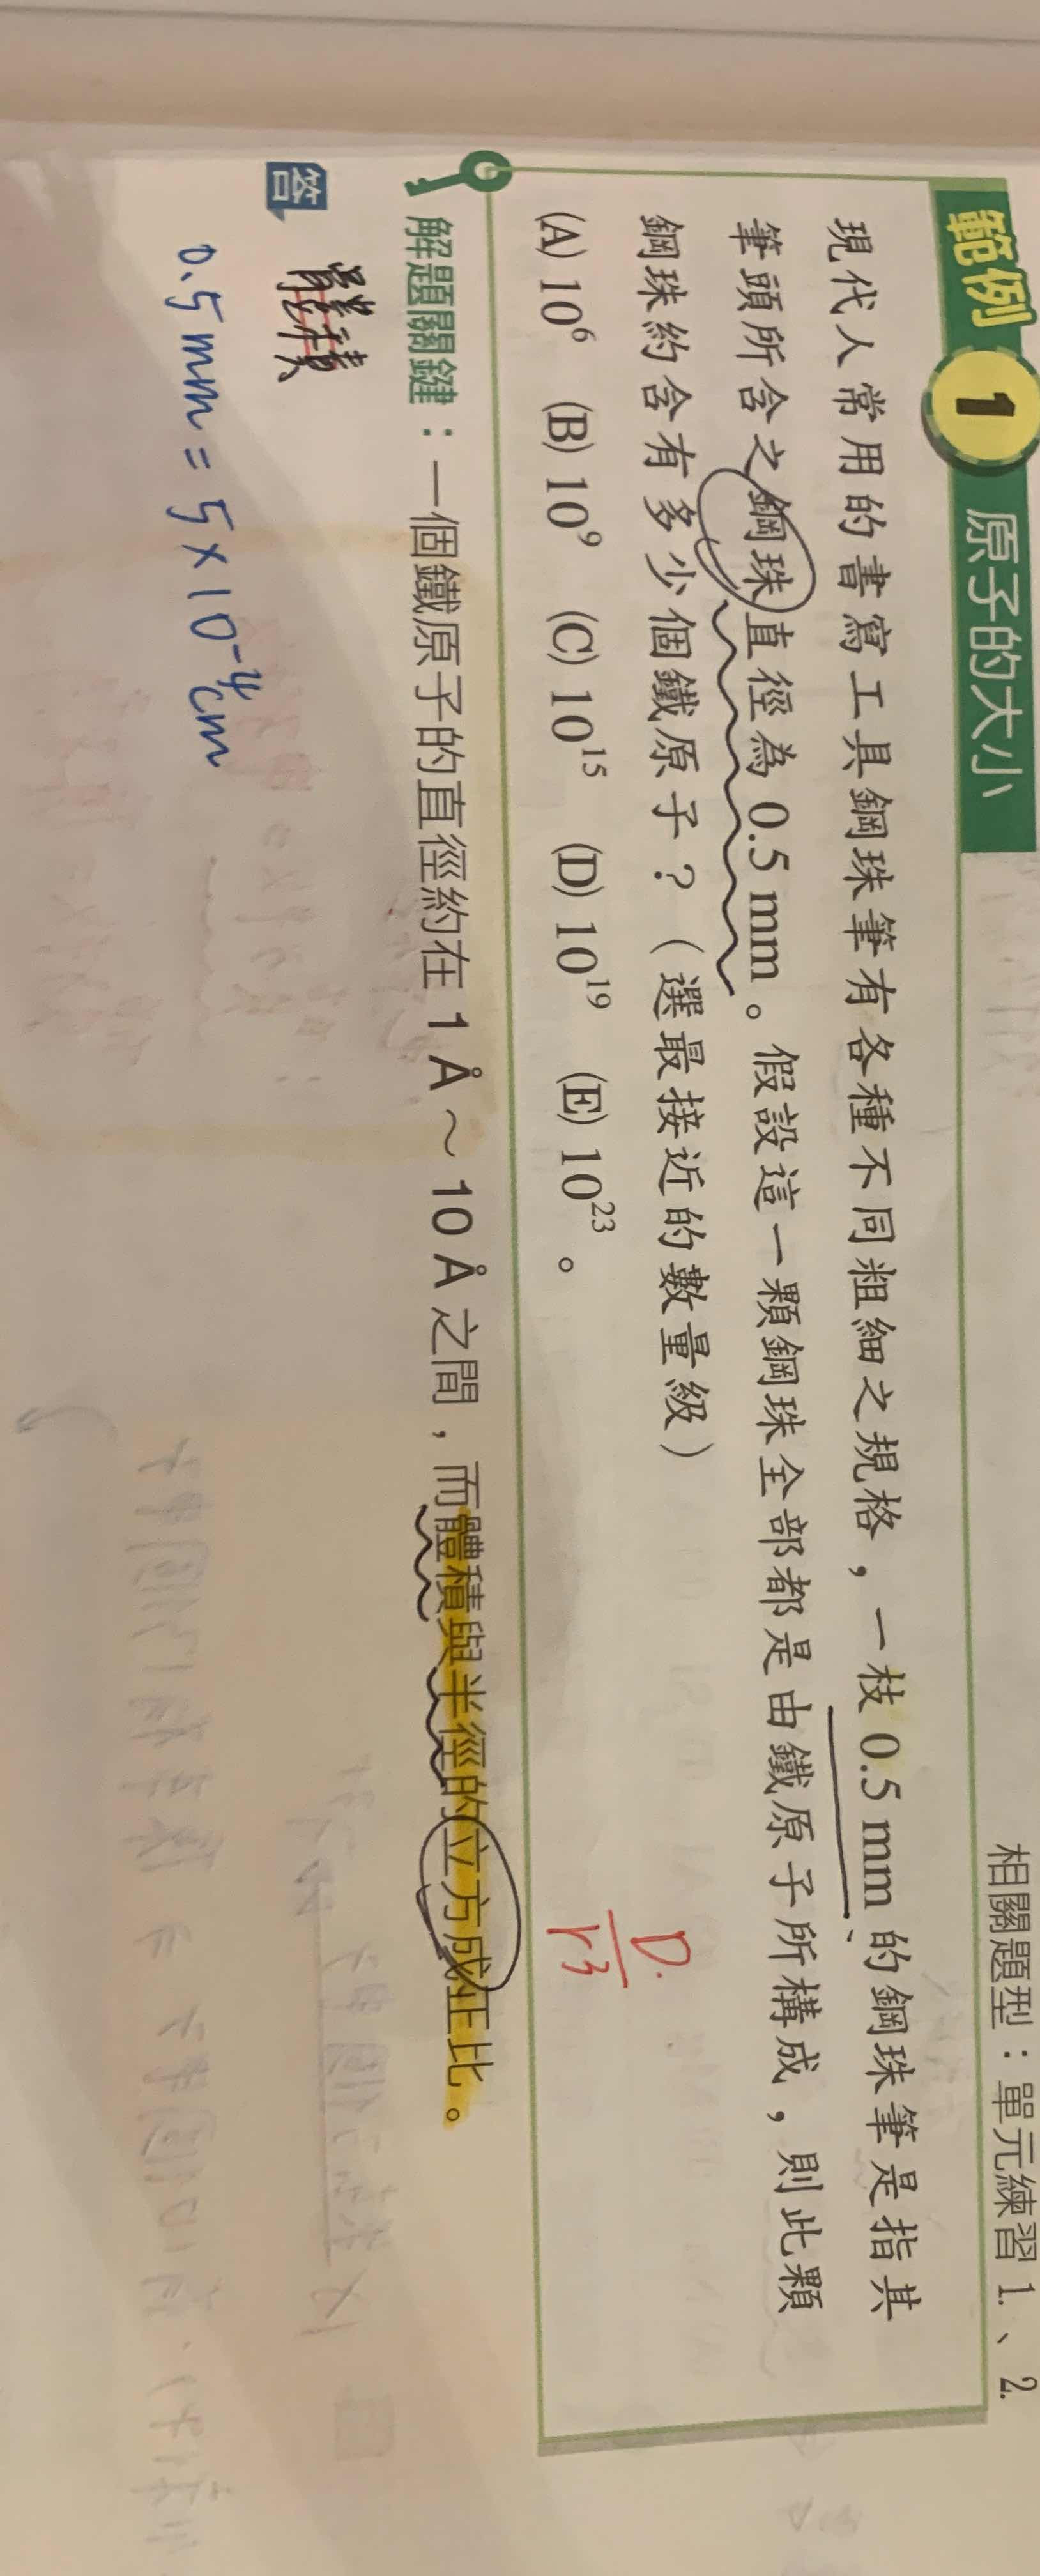 相關題型：單元練習 1.、2.
範例 1 原子的大小
現代人常用的書寫工具鋼珠筆有各種不同粗細之規格，一枝 0.5 mm 的鋼珠筆是指其
筆頭所含之鋼珠直徑為 0.5 mm。假設這一顆鋼珠全部都是由鐵原子所構成，則此顆
鋼珠約含有多少個鐵原子？（選最接近的數量級）
D.
(A) 10⁶ (B) 10⁹ (C) 10¹⁵ (D) 10¹⁹ (E) 10²³。
r³
解題關鍵：一個鐵原子的直徑約在 1 Å～10 Å 之間，而體積與半徑的立方成正比。
答
體積
0.5 mm = 5 × 10⁻⁴ cm